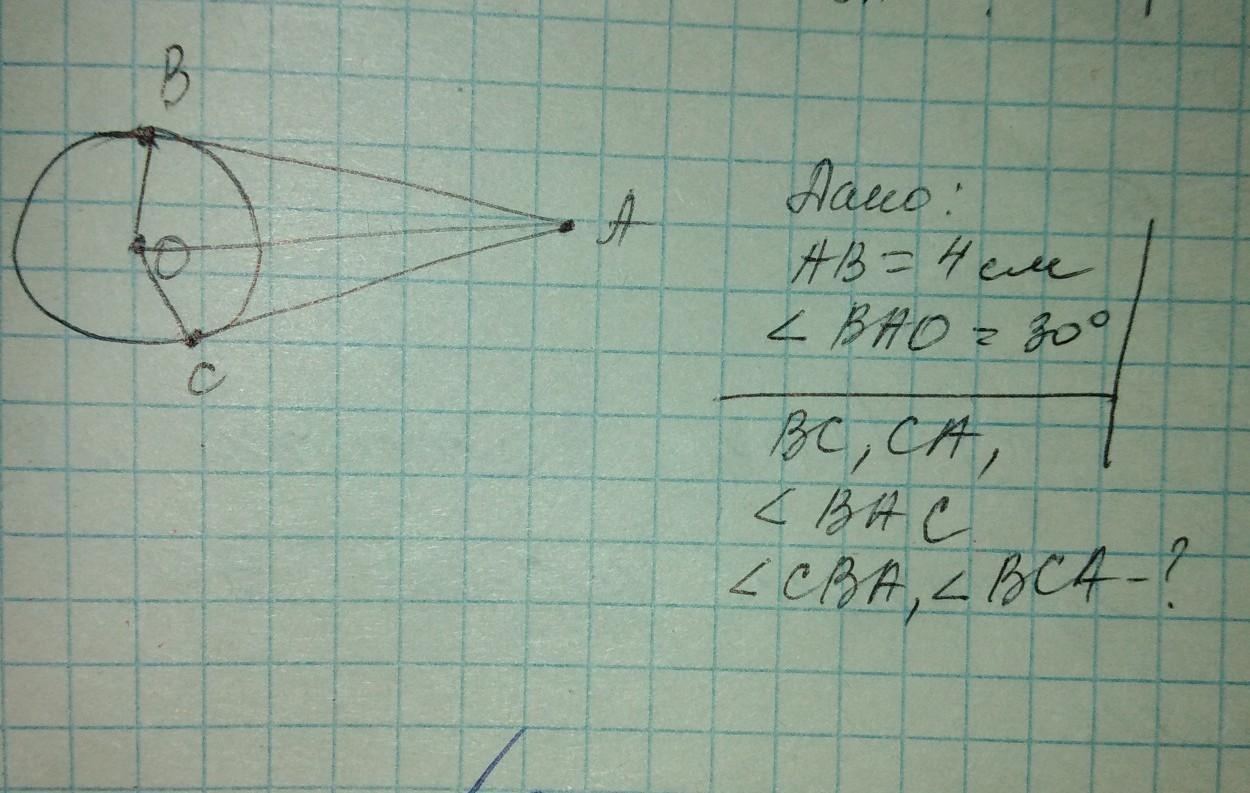 B
O
A
C
Дано:
AB = 4 см
∠ BAO = 30°
BC, CA,
∠ BAC
∠ CBA, ∠ BCA - ?